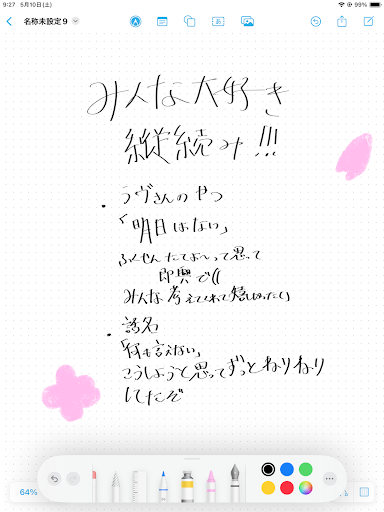 9:27 5月10日(土)
99%
名称未設定 9
あ
みんな大好き
縦続み!!!
・ラヴさんのやつ
「明日はない」
ふくせんたてよ〜って思って
即興で((
みんな考えてくれて嬉しかったし
・話名
「何も言えない」
こうしようと思ってずっとねりねり
してたぞ
64%